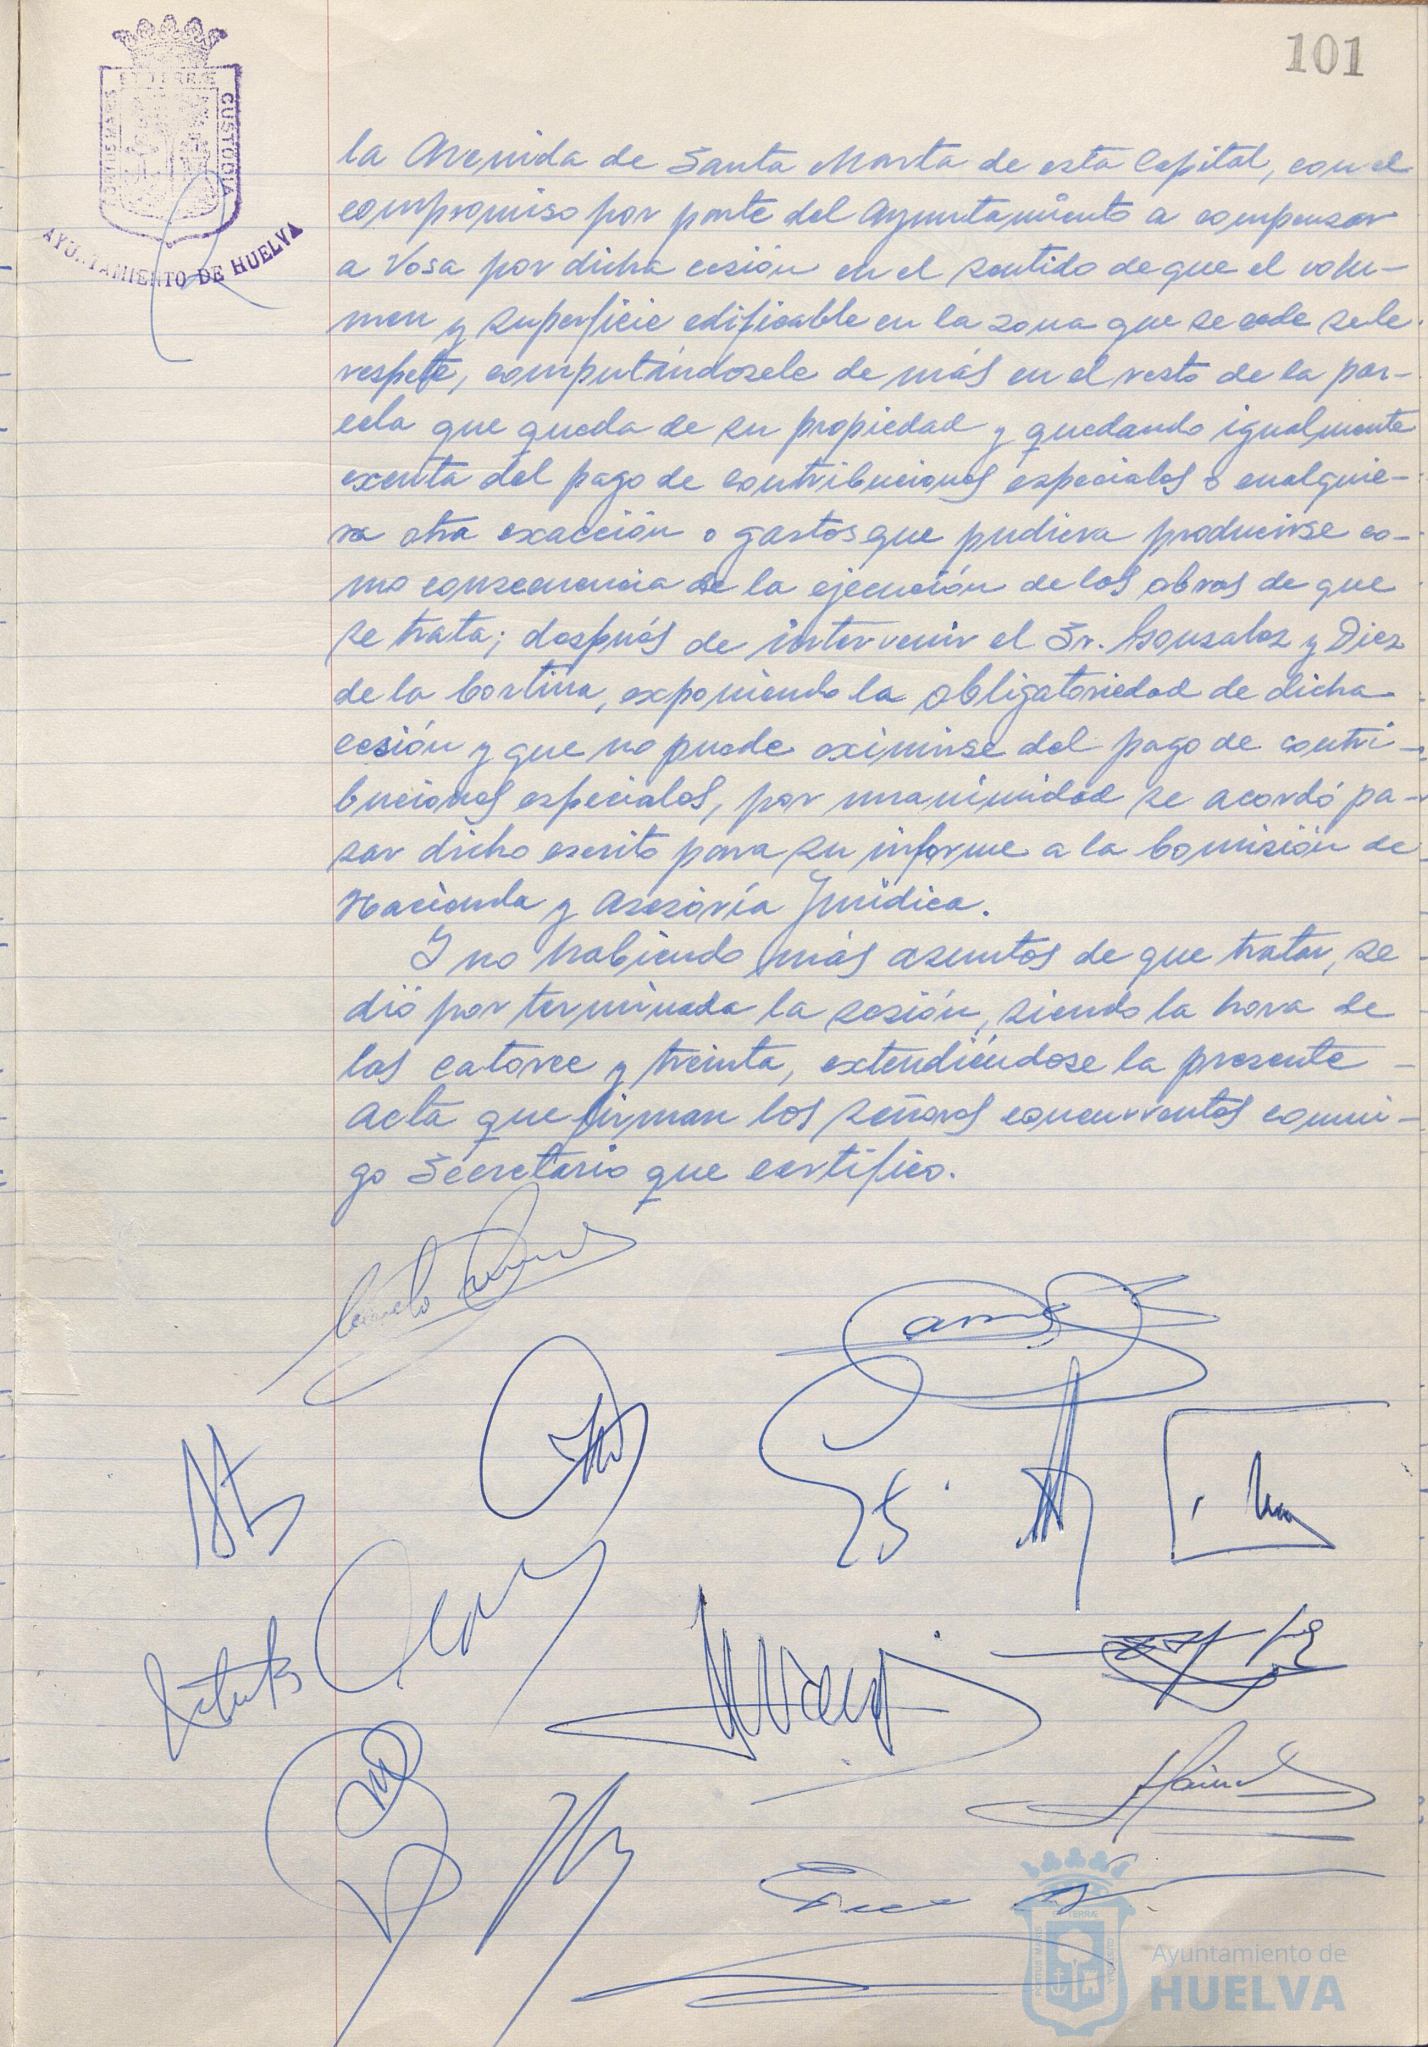 101
PORTUS MARIS
ET TERRÆ
CUSTODIA
AYUNTAMIENTO DE HUELVA
la Avenida de Santa Marta de esta Capital, con el
compromiso por parte del Ayuntamiento a compensar
a Vosa por dicha cesión en el sentido de que el volu-
men y superficie edificable en la zona que se cede se le
respete, computándosele de más en el resto de la par-
cela que queda de su propiedad y quedando igualmente
exenta del pago de contribuciones especiales o cualquie-
ra otra exacción o gastos que pudiera producirse co-
mo consecuencia de la ejecución de las obras de que
se trata; después de intervenir el Sr. Gonzalez y Diez
de la Cortina, exponiendo la obligatoriedad de dicha
cesión y que no puede eximirse del pago de contri-
buciones especiales, por unanimidad se acordó pa-
sar dicho escrito para su informe a la Comisión de
Hacienda y Asesoría Jurídica.
Y no habiendo más asuntos de que tratar, se
dió por terminada la sesión, siendo la hora de
las catorce y treinta, extendiéndose la presente
acta que firman los señores concurrentes conmi-
go Secretario que certifico.
Ayuntamiento de
HUELVA